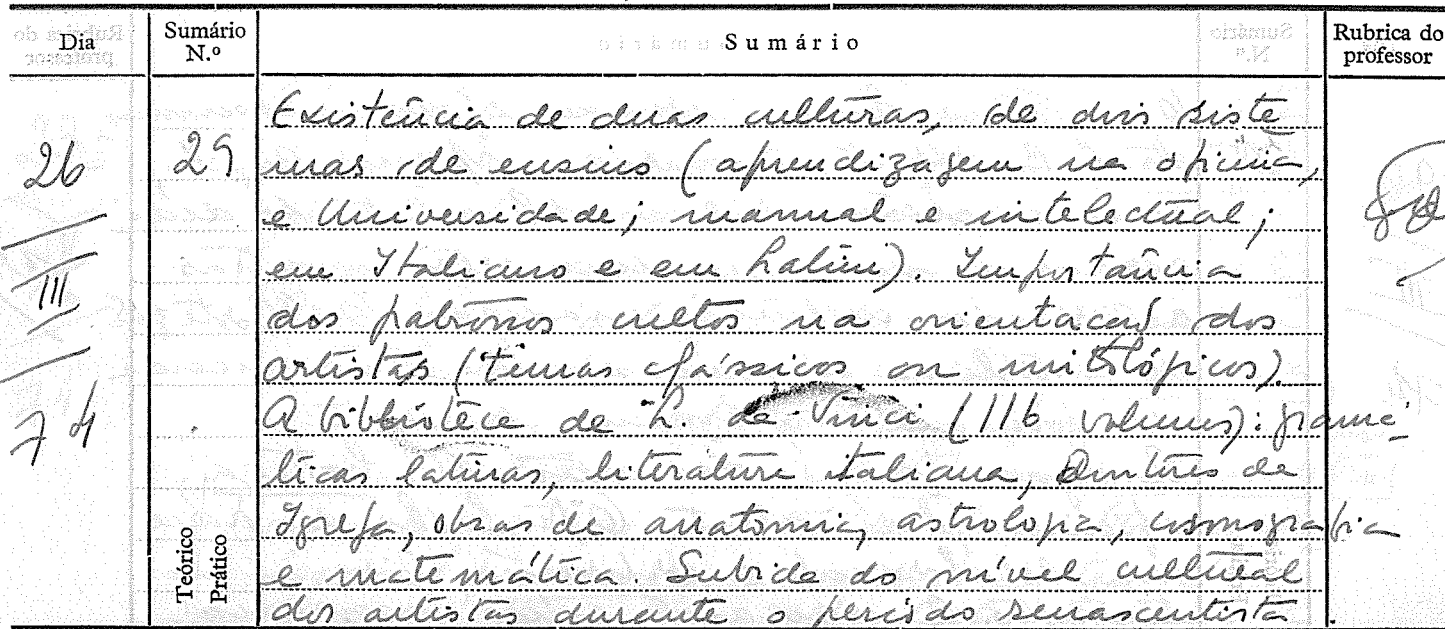 Dia Sumário N.º Sumário Rubrica do professor
Existência de duas culturas, de dois siste
26 29 mas de ensino (aprendizagem na oficina,
e Universidade; manual e intelectual;
em Italiano e em Latim). Importância
III dos patronos cultos na orientação dos
artistas (temas clássicos ou mitológicos).
74 A biblioteca de L. de Vinci (116 volumes): gramá
ticas latinas, literatura italiana, Doutores da
Igreja, obras de anatomia, astrologia, cosmografia
e matemática. Subida do nível cultural
dos artistas durante o período renascentista.
Teórico
Prático